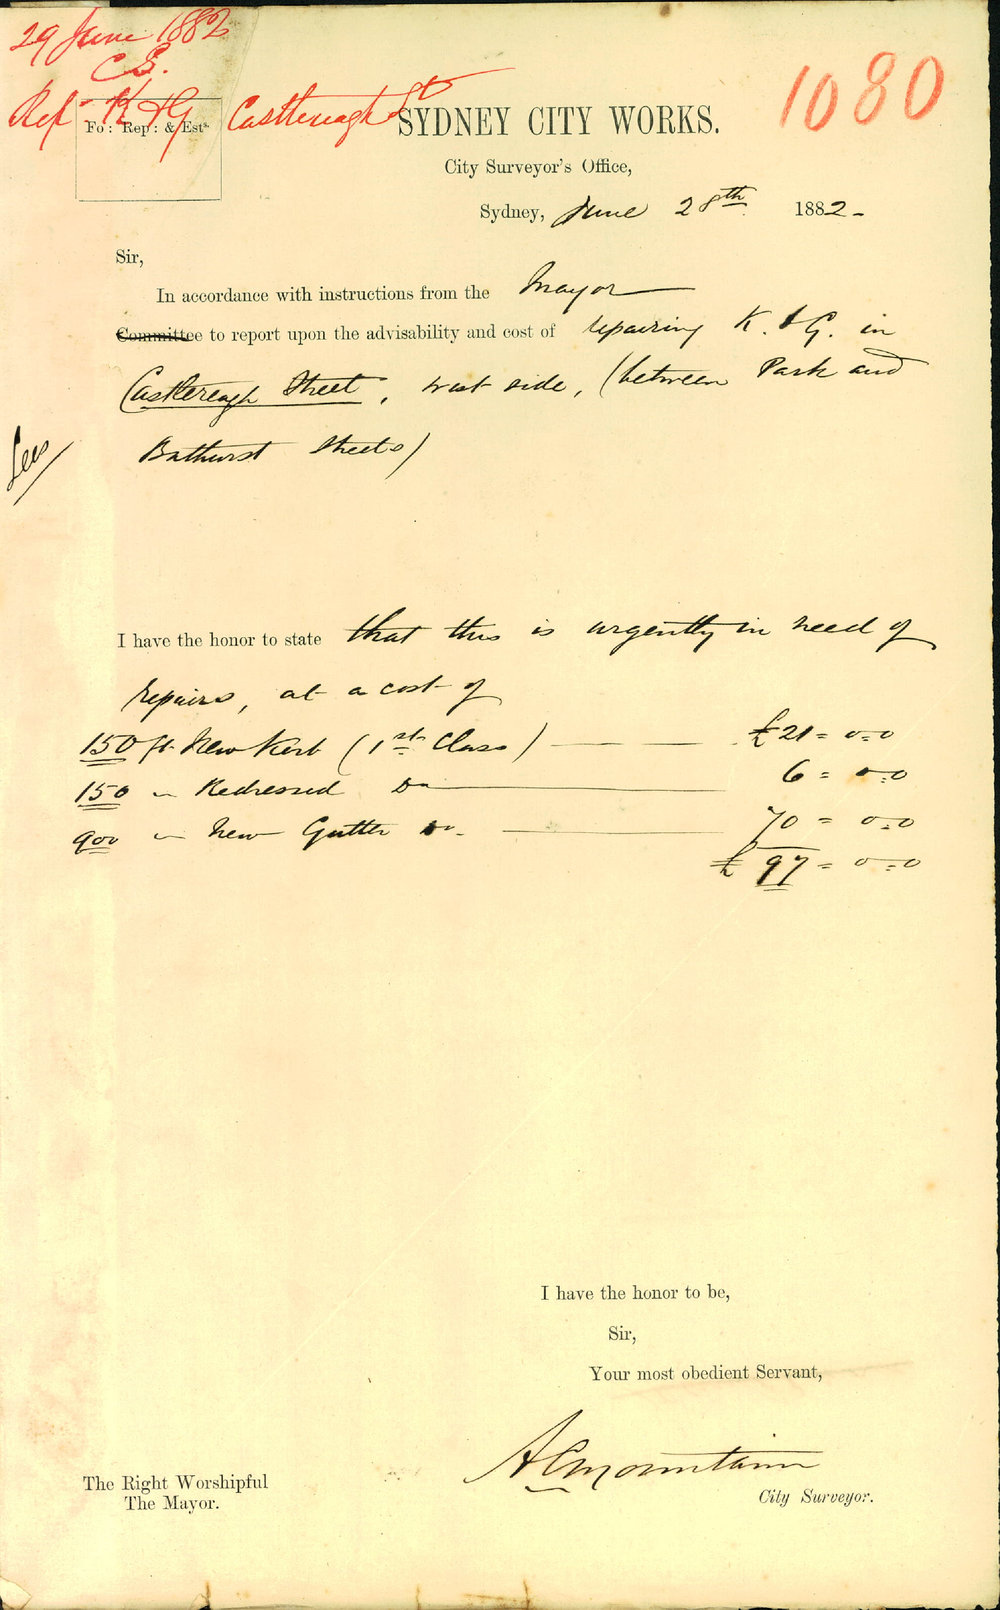 29 June 1882
C.S.
Ref K & G Castlereagh St
1080
Fo: Rep: & Ests
SYDNEY CITY WORKS.
City Surveyor's Office,
Sydney, June 28th 1882-
Sir,
In accordance with instructions from the Mayor
Committee to report upon the advisability and cost of repairing K. & G. in
Castlereagh Street, west side, (between Park and
Bathurst Streets)
I have the honor to state that this is urgently in need of
repairs, at a cost of
150 ft. New Kerb (1st Class) £21 = 0=0
150 " Redressed Do 6 = 0=0
900 " New Gutter Do. 70 = 0=0
£ 97 = 0=0
I have the honor to be,
Sir,
Your most obedient Servant,
A C Mountain
City Surveyor.
The Right Worshipful
The Mayor.